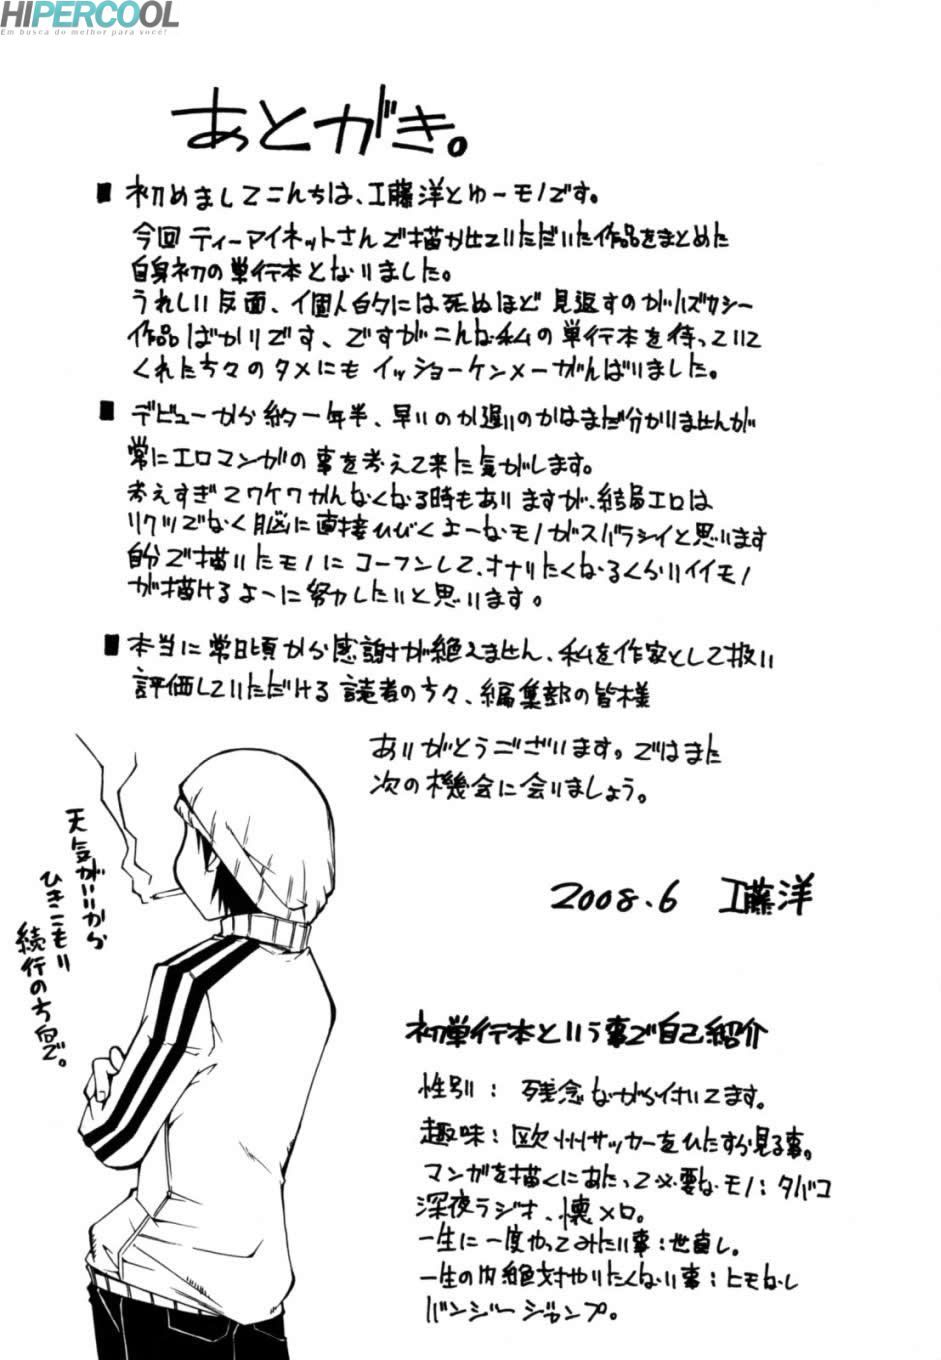 HIPERCOOL
Em busca do melhor para você!
あとがき。
■ 初めましてこんちは、工藤洋とゆーモノです。
今回ティーアイネットさんで描かせていただいた作品をまとめた
自身初の単行本となりました。
うれしい反面、個人的には死ぬほど見返すのがハズカシー
作品ばかりです、ですがこんな私の単行本を待っていて
くれた方々のタメにもイッショーケンメーがんばりました。
■ デビューから約一年半、早いのか遅いのかはまだ分かりませんが
常にエロマンガの事を考えて来た気がします。
考えすぎてワケワかんなくなる時もありますが、結局エロは
リクツでなく脳に直接ひびくよーなモノがスバラシイと思います
自分で描いたモノにコーフンして、オナりたくなるくらいイイモノ
が描けるよーに努力したいと思います。
■ 本当に常日頃から感謝が絶えません、私を作家として扱い
評価していただける読者の方々、編集部の皆様
ありがとうございます。ではまた
次の機会に会いましょう。
2008.6 工藤洋
天気がいいから
ひきこもり
続行の方向で。
初単行本という事で自己紹介
性別：残念ながら付いてます。
趣味：欧州サッカーをひたすら見る事。
マンガを描くにあたって必要なモノ：タバコ
深夜ラジオ、懐メロ。
一生に一度やってみたい事：世直し。
一生の内絶対やりたくない事：ヒモなし
バンジージャンプ。